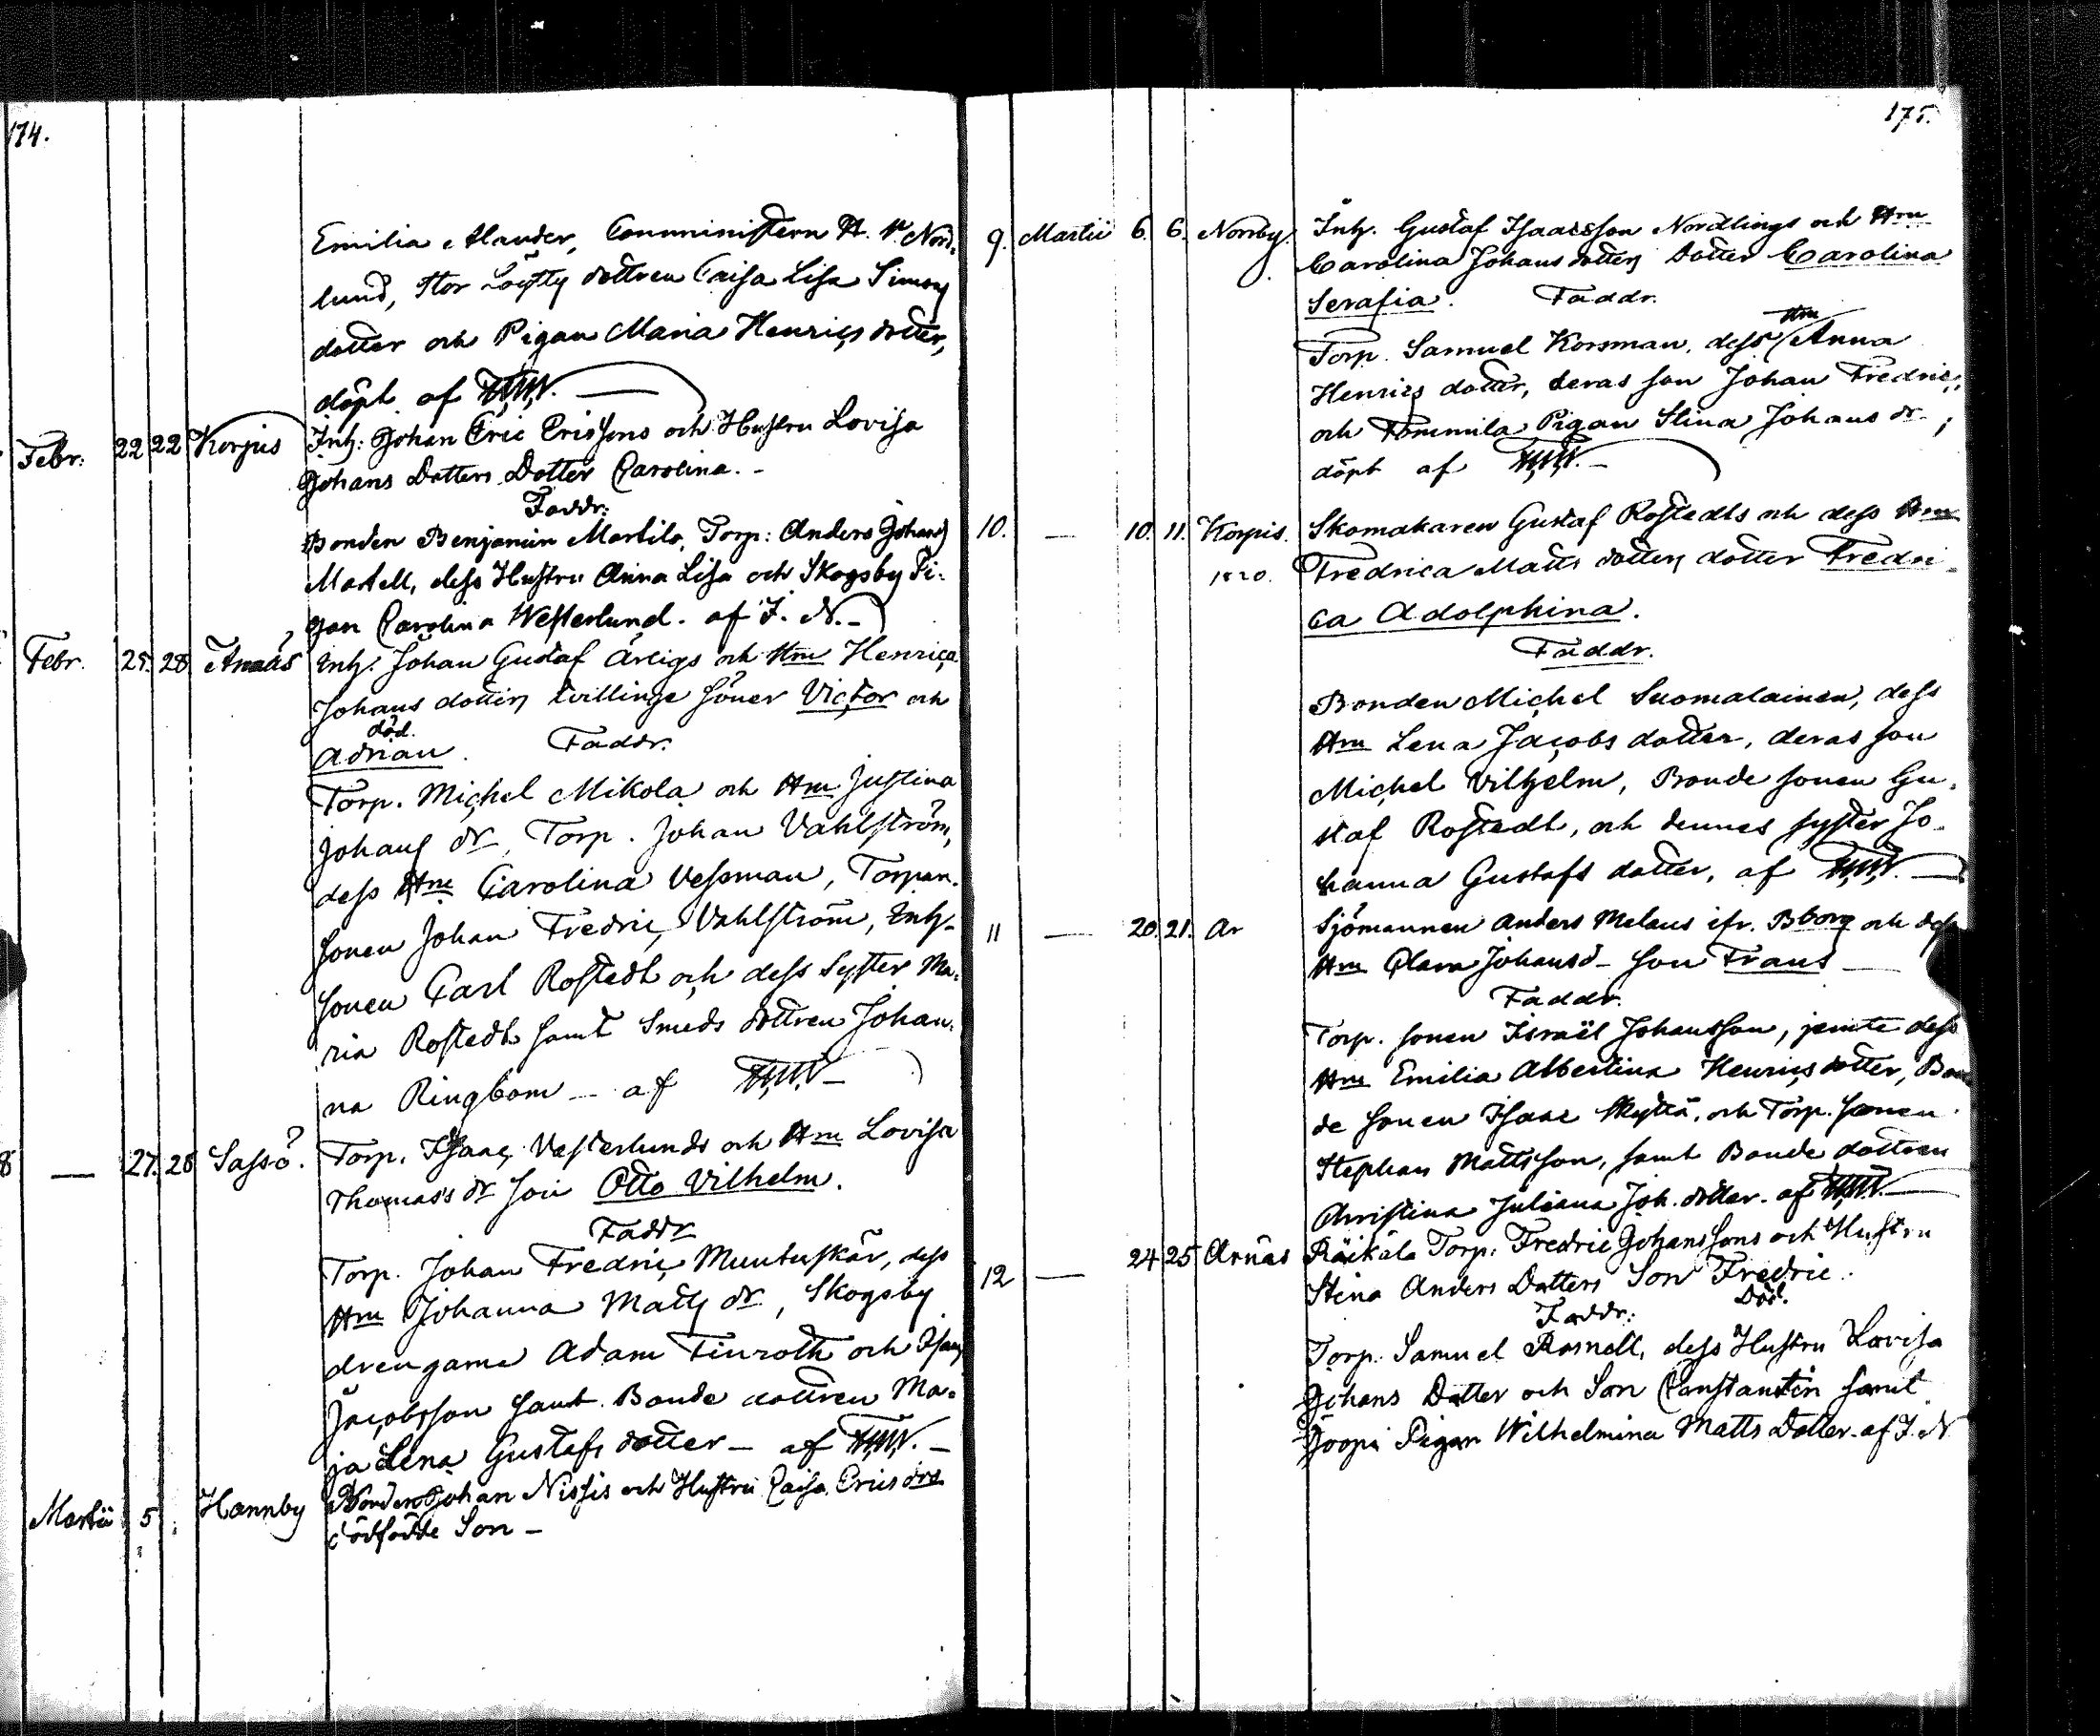 174.
Emilia Alander, Comministern H. M. Nord-
lund, Stor Löfty dottren Caisa Lisa Simons
dotter och Pigan Maria Henrics dotter,
döpt af H.M.N.
Febr: 22 22 Korpis Inh: Johan Eric Erissons och Hustru Lovisa
Johans Dotters Dotter Carolina. -
Faddr:
Bonden Benjamin Martila, Torp: Anders Johans
Martell, dess Hustru Anna Lisa och Skogsby Pi-
gan Carolina Westerlund. af J. N. -
Febr. 25. 28 Arnäs Inh. Johan Gustaf Ärligs och Hru Henrica
Johans dotters tvillinge söner Victor och
död.
Adrian. Faddr.
Torp. Michel Mikola och Hru Justina
Johans dr, Torp. Johan Vahlström,
dess Hru Carolina Vessman, Torpare-
sonen Johan Fredric Vahlström, Inh-
sonen Carl Rostedt och dess Syster Ma-
ria Rostedt samt Smeds dottren Johan-
na Ringbom - af H.M.N -
8 — 27. 28 Sassö. Torp. Isaac Vesterlunds och Hru Lovisa
Thomas's dr son Otto Vilhelm.
Faddr
Torp. Johan Fredric Muntuskär, dess
Hru Johanna Matts dr, Skogsby
drengarne Adam Finroth och Isaac
Jacobsson samt Bonde dottren Ma-
ja Lena Gustafs dotter - af H.M.N. -
Martii 5 Hannby Bonden Johan Nissis och Hustru Caisa Erics drs
dödfödde Son -
175.
9. Martii 6. 6. Norrby. Inh. Gustaf Isaacsson Nordlings och Hru
Carolina Johans dotters dotter Carolina
Serafia. Faddr.
Hru
Torp. Samuel Korsman, dess Anna
Henrics dotter, deras son Johan Fredric,
och Tommila Pigan Stina Johans dr,
döpt af H.M.N. -
10. — 10. 11. Korpis. Skomakaren Gustaf Rostedts och dess Hru
1820. Fredrica Matts dotters dotter Fredri-
ca Adolphina.
Faddr.
Bonden Michel Suomalainen, dess
Hru Lena Jacobs dotter, deras son
Michel Vilhelm, Bonde sonen Gu-
staf Rostedt, och dennes syster Jo-
hanna Gustafs dotter, af H.M.N. —
11 — 20. 21. Ar Sjömannen Anders Melaus ifr. Bborg och dess
Hru Clara Johansd - son Frans —
Faddr.
Torp. sonen Israël Johansson, jemte dess
Hru Emilia Albertina Henrics dotter, Bon
de sonen Isaac Skyttä, och Torp. sonen
Stephan Mattsson, samt Bonde dottren
Christina Juliana Joh. dotter. af H.M.N. —
12 — 24 25 Arnäs Räikälä Torp. Fredric Johanssons och Hustru
Stina Anders Dotters Son Fredric.
Faddr: Död.
Torp. Samuel Rosnell, dess Hustru Lovisa
Johans Dotter och Son Constantin samt
Joopi Pigan Wilhelmina Matts Dotter. af J. N